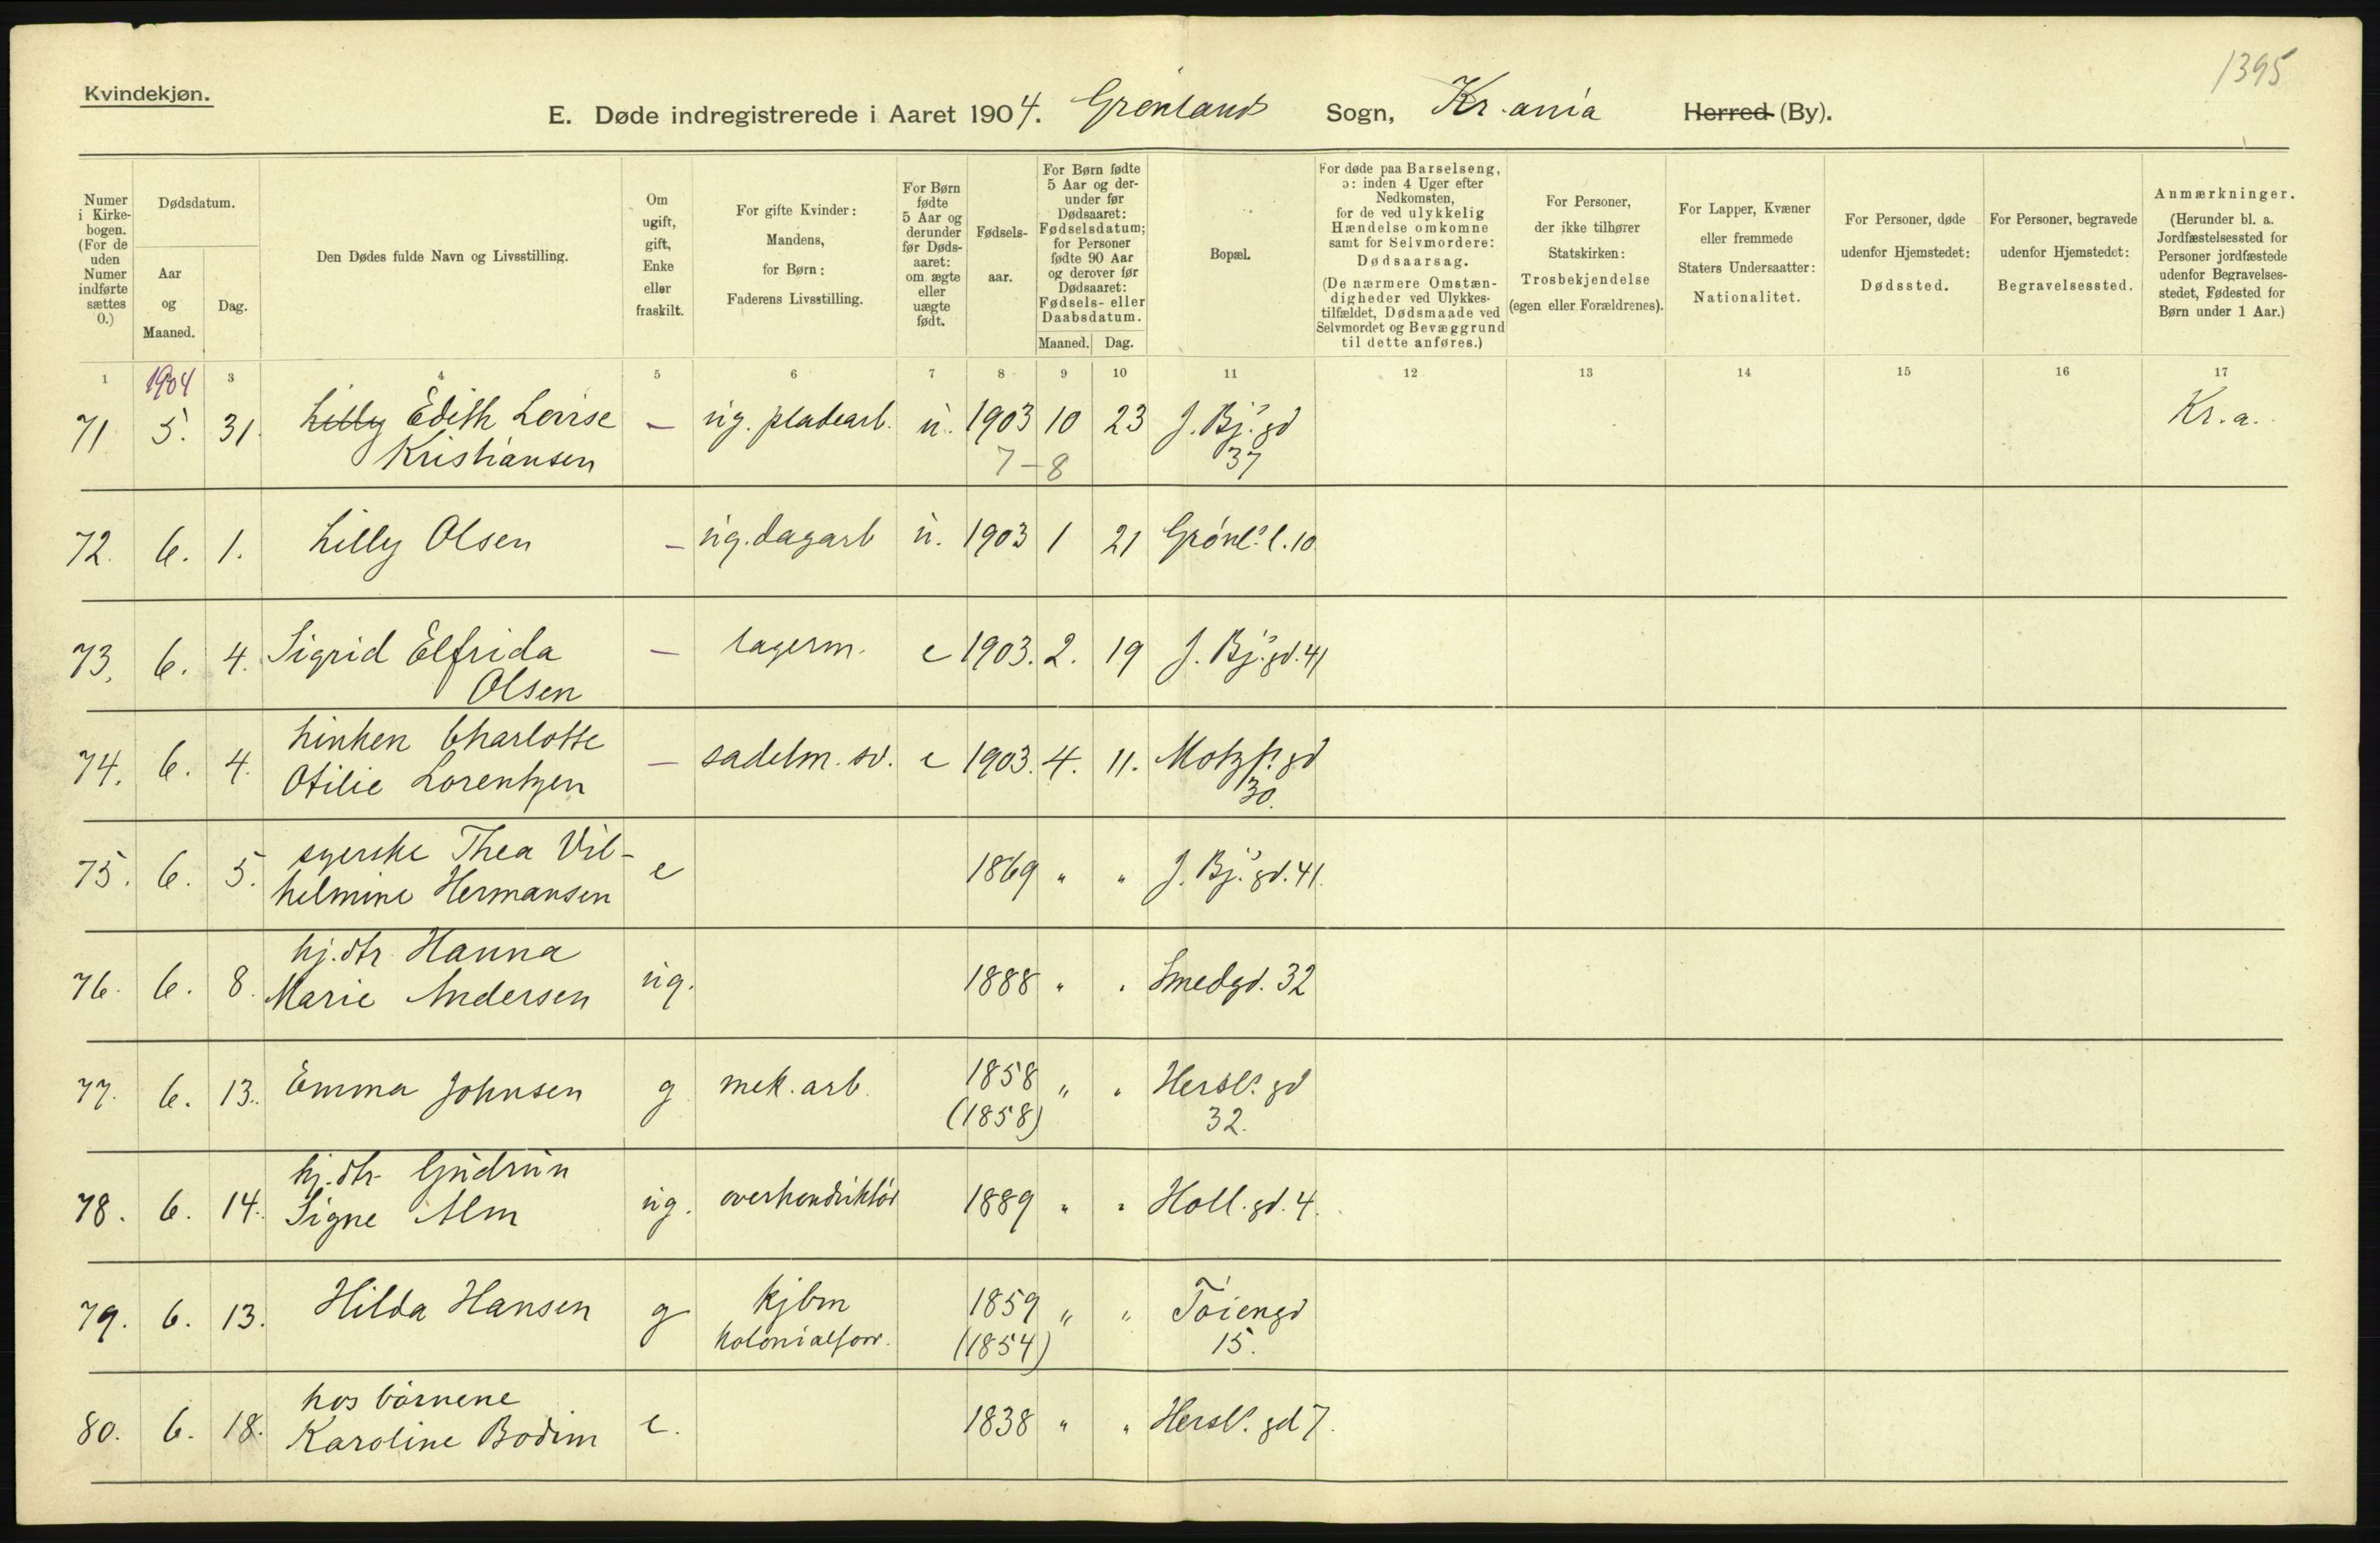 1395
Kvindekjøn.
E. Døde indregistrerede i Aaret 1904. Grønlands Sogn, Kr.ania Herred (By).
Numer i Kirkebogen. (For de uden Numer indførte sættes 0.)
Dødsdatum.
Aar og Maaned.
Dag.
Den Dødes fulde Navn og Livsstilling.
Om ugift, gift, Enke eller fraskilt.
For gifte Kvinder: Mandens, for Børn: Faderens Livsstilling.
For Børn fødte 5 Aar og derunder før Dødsaaret: om ægte eller uægte født.
Fødselsaar.
For Børn fødte 5 Aar og derunder før Dødsaaret: Fødselsdatum; for Personer fødte 90 Aar og derover før Dødsaaret: Fødsels- eller Daabsdatum.
Maaned. Dag.
Bopæl.
For døde paa Barselseng, ɔ: inden 4 Uger efter Nedkomsten, for de ved ulykkelig Hændelse omkomne samt for Selvmordere: Dødsaarsag. (De nærmere Omstændigheder ved Ulykkestilfældet, Dødsmaade ved Selvmordet og Bevæggrund til dette anføres.)
For Personer, der ikke tilhører Statskirken: Trosbekjendelse (egen eller Forældrenes).
For Lapper, Kvæner eller fremmede Staters Undersaatter: Nationalitet.
For Personer, døde udenfor Hjemstedet: Dødssted.
For Personer, begravede udenfor Hjemstedet: Begravelsessted.
Anmærkninger. (Herunder bl. a. Jordfæstelsessted for Personer jordfæstede udenfor Begravelsesstedet, Fødested for Børn under 1 Aar.)
1 3 4 5 6 7 8 9 10 11 12 13 14 15 16 17
1904
71 5. 31. Lilly Edith Lovise — ug. pladearb. u. 1903 10 23 J. Bj.s gd Kr.a.
Kristiansen 7-8 37
72. 6. 1. Lilly Olsen — ug. dagarb u. 1903 1 21 Grønl.s l. 10
73. 6. 4. Sigrid Elfrida — lagerm. e 1903. 2. 19 J. Bj.s gd. 41
Olsen
Linken Charlotte
74. 6. 4. Otilie Lorentzen — sadelm. sv. e 1903. 4. 11. Motzf.s gd
30.
syerske Thea Vil-
75. 6. 5. helmine Hermansen e 1869 " " J. Bj.s gd. 41.
hj. dtr Hanna
76. 6. 8. Marie Andersen ug. 1888 " " Smedgd. 32
77. 6. 13. Emma Johnsen g mek. arb. 1858 " " Hersl.s gd
(1858) 32.
hj. dtr Gudrun
78. 6. 14. Signe Alm ug. overkonduktør 1889 " " Holl. gd. 4.
79. 6. 13. Hilda Hansen g kjbm 1859 " " Tøiengd
kolonialforr. (1854) 15.
hos børnene
80. 6. 18. Karoline Bodim e. 1838 " " Hersl.s gd 7.